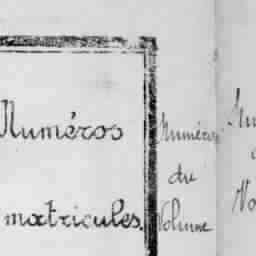 Numéros
matricules.
Numéros
du
Volume